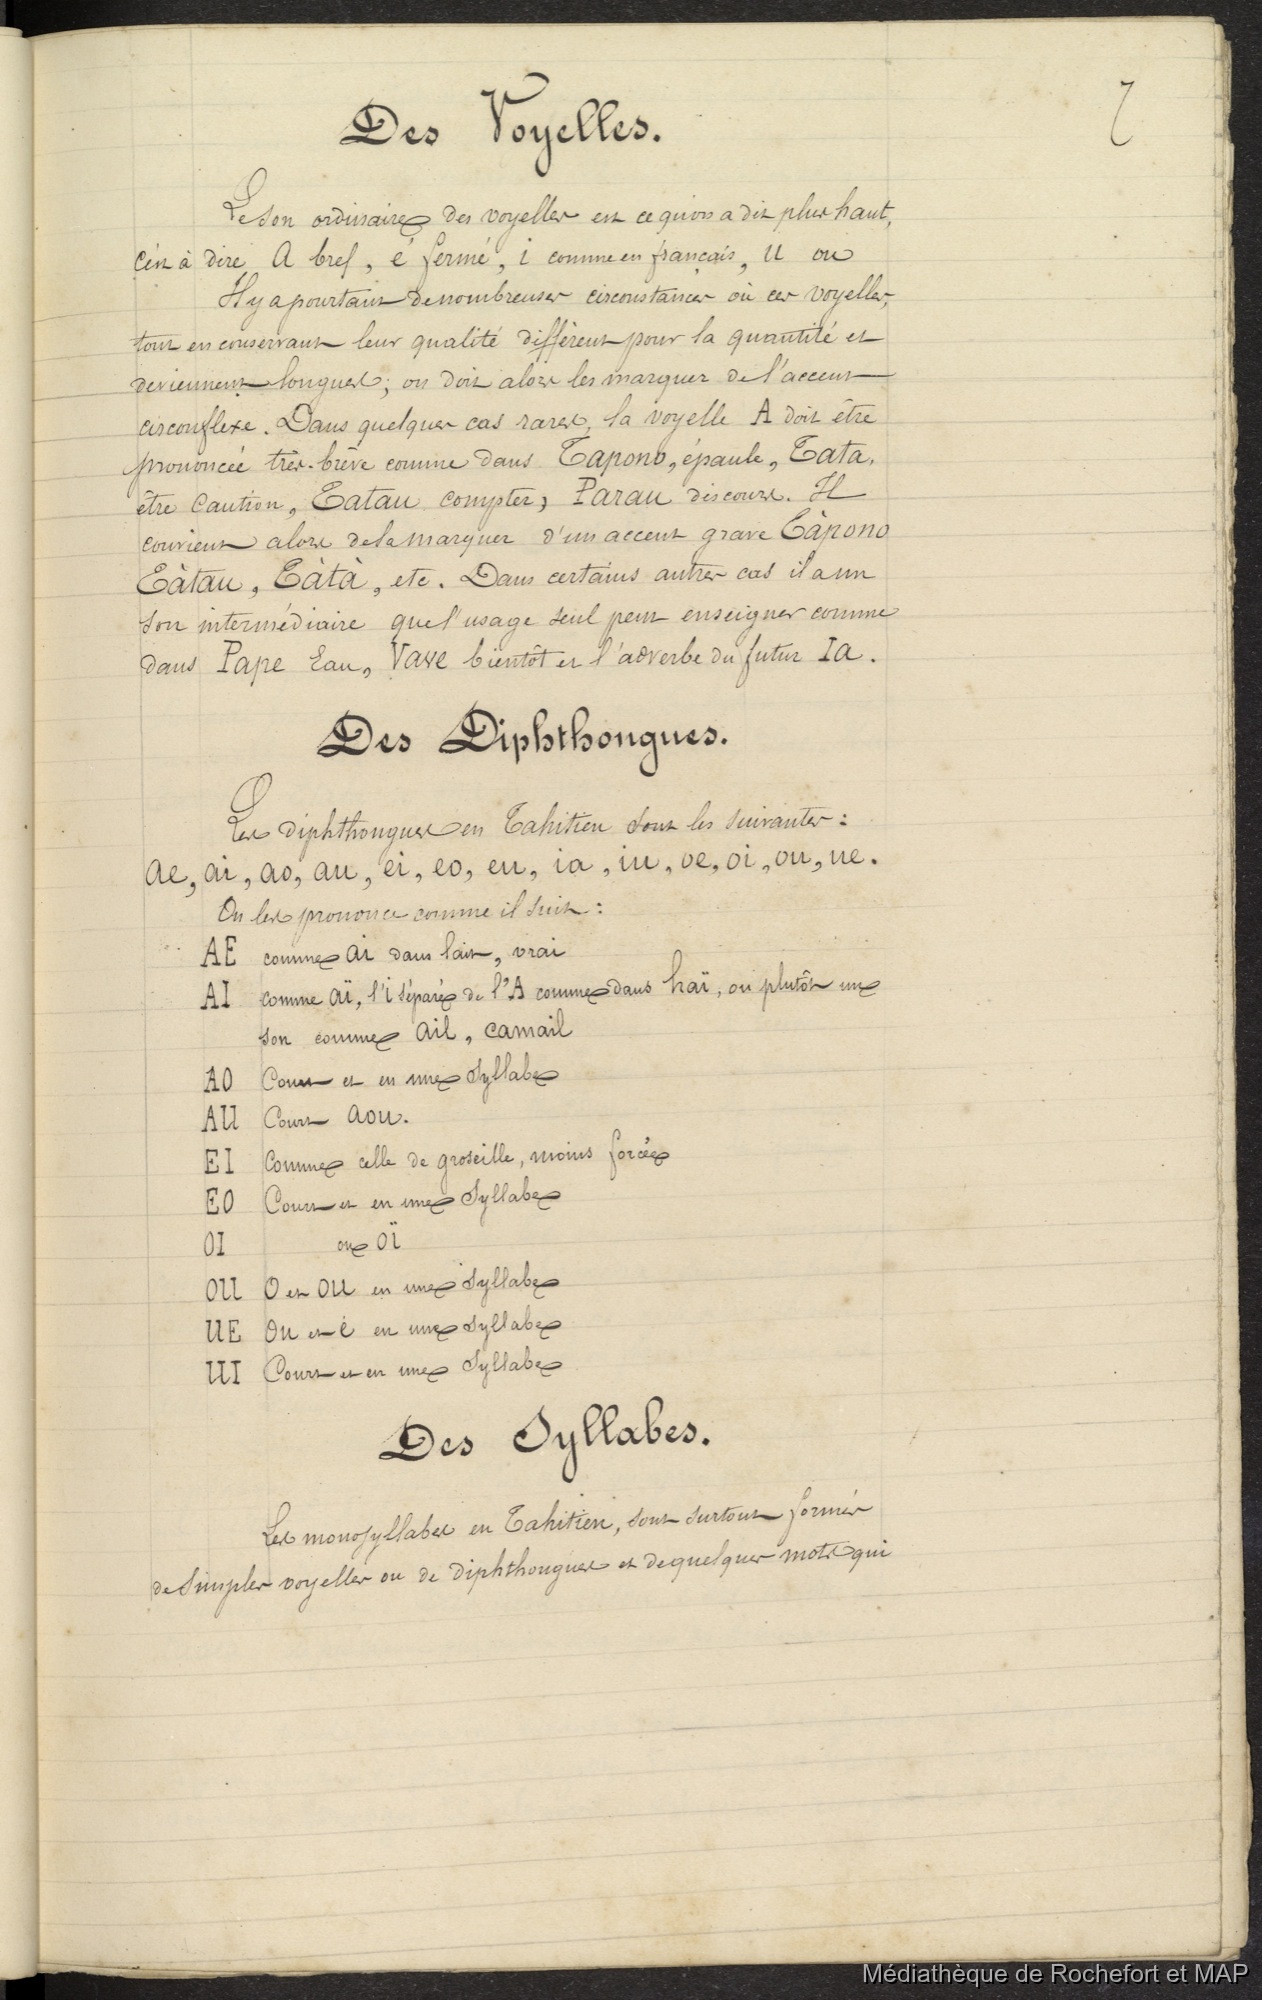 7
Des Voyelles.
Le son ordinaire des voyelles est ce qu'on a dit plus haut,
c'est à dire A bref, é fermé, i comme en français, U ou
Il y a pourtant de nombreuses circonstances où ces voyelles,
tout en conservant leur qualité diffèrent pour la quantité et
deviennent longues; on doit alors les marquer de l'accent
circonflexe. Dans quelques cas rares, la voyelle A doit être
prononcée très-brève comme dans Tapono, épaule, Tata,
être caution, Tatau compter, Parau discours. Il
convient alors de la marquer d'un accent grave Tàpono
Tàtau, Tàtà, etc. Dans certains autres cas il a un
son intermédiaire que l'usage seul peut enseigner comme
dans Pape Eau, Vave bientôt et l'adverbe du futur Ia.
Des Diphthongues.
Les diphthongues en Tahitien sont les suivantes:
ae, ai, ao, au, ei, eo, eu, ia, iu, oe, oi, ou, ue.
On les prononce comme il suit:
AE comme ai dans lait, vrai
AI comme aï, l'i séparé de l'A comme dans haï, ou plutôt un
son comme ail, camail
AO Court et en une syllabe
AU Court aou.
EI Comme celle de groseille, moins forcée
EO Court et en une syllabe
OI ou oï
OU O et OU en une syllabe
UE Ou et é en une syllabe
UI Court et en une syllabe
Des Syllabes.
Les monosyllabes en Tahitien, sont surtout formés
de simples voyelles ou de diphthongues et de quelques mots qui
Médiathèque de Rochefort et MAP